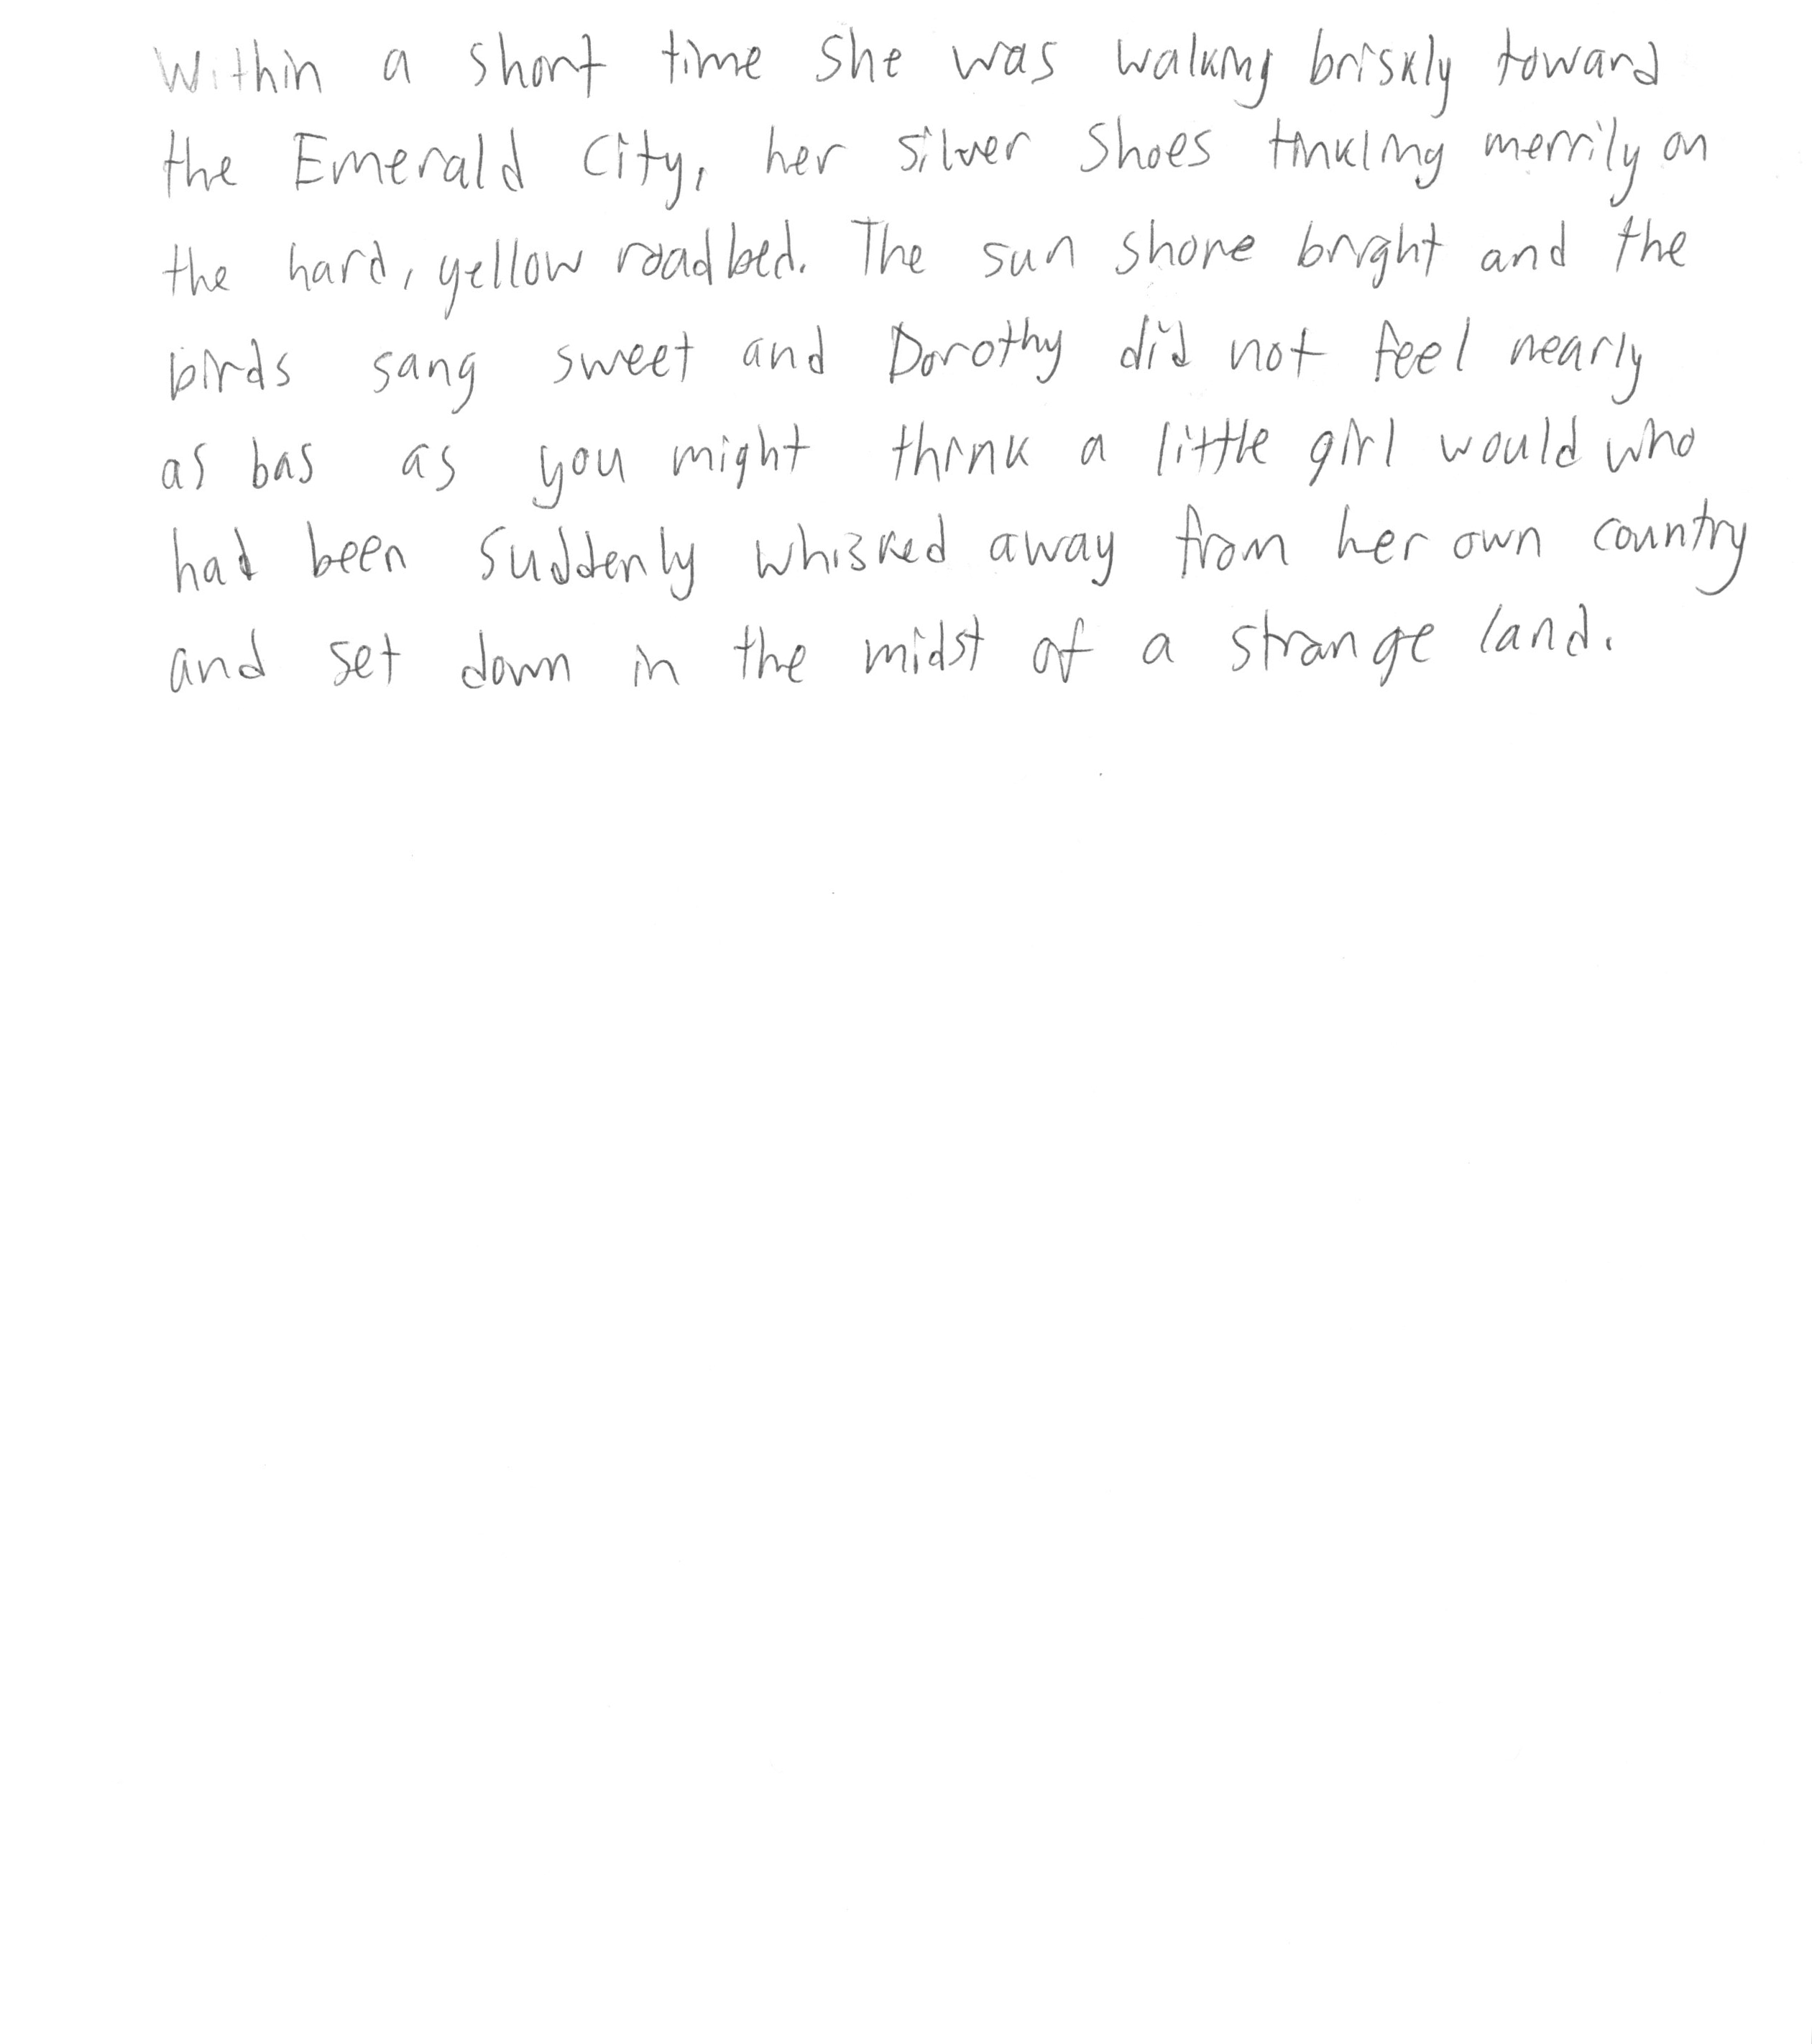 Within a short time she was walking briskly toward
the Emerald City, her silver shoes tinkling merrily on
the hard, yellow roadbed. The sun shone bright and the
birds sang sweet and Dorothy did not feel nearly
as bas as you might think a little girl would who
had been suddenly whisked away from her own country
and set down in the midst of a strange land.